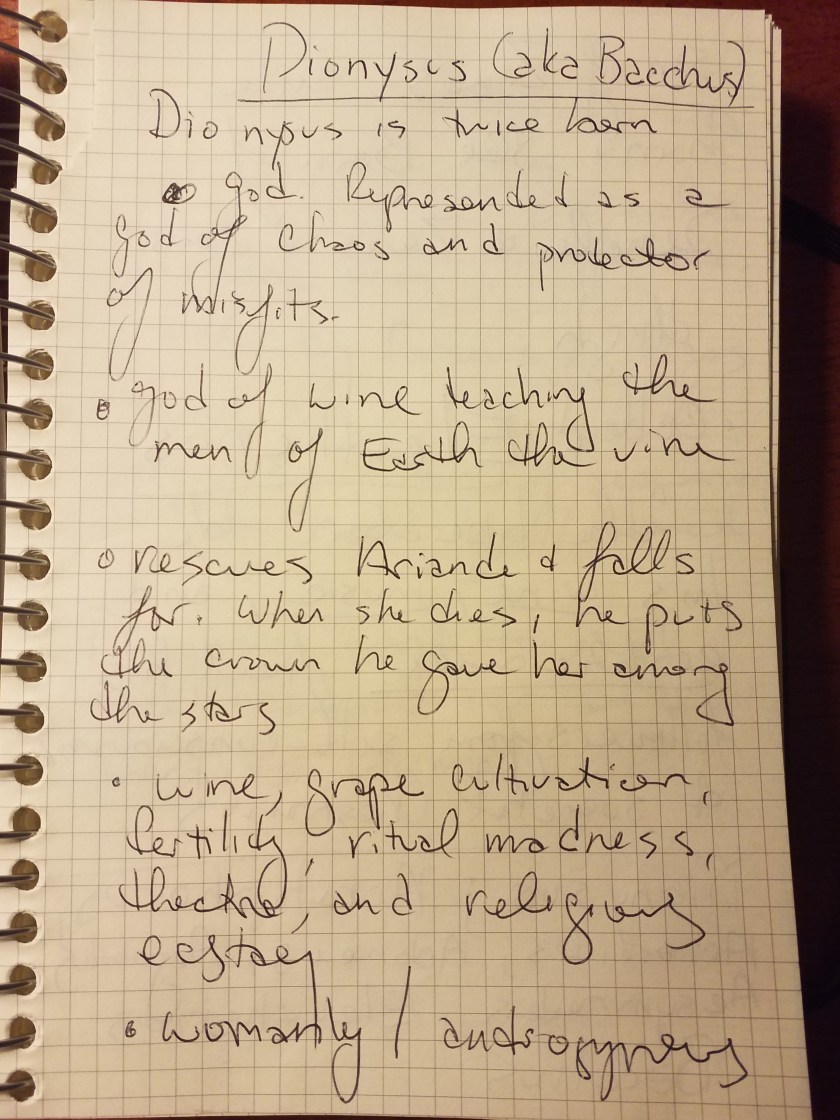 Dionysus (aka Bacchus)
Dionysus is twice born
god. Represended as a
god of chaos and protector
of misfits.
god of wine teaching the
men of Earth the vine
rescues Ariande & falls
for. When she dies, he puts
the crown he gave her among
the stars
wine, grape cultivation,
fertility, ritual madness,
theatre, and religious
ecstacy
womanly / androgynous